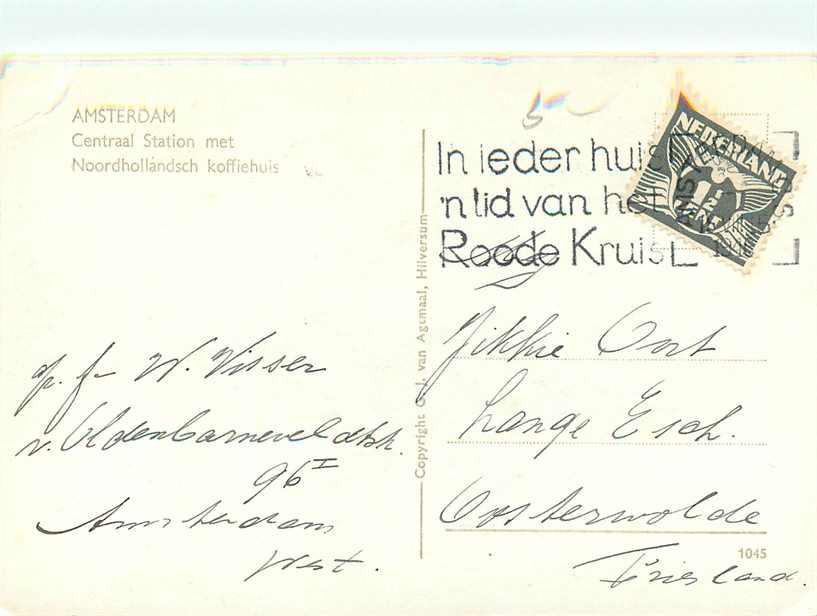 AMSTERDAM
Centraal Station met
Noordhollandsch koffiehuis
In ieder huis
'n lid van het
Roode Kruis
NEDERLAND
1½
CENT
1946
p. f. W. Visser
v. Oldenbarneveldtstr.
96 I
Amsterdam
West.
Copyright van Agtmaal, Hilversum
Jikkie Oort
Lange Esch.
Oosterwolde
Friesland.
1045